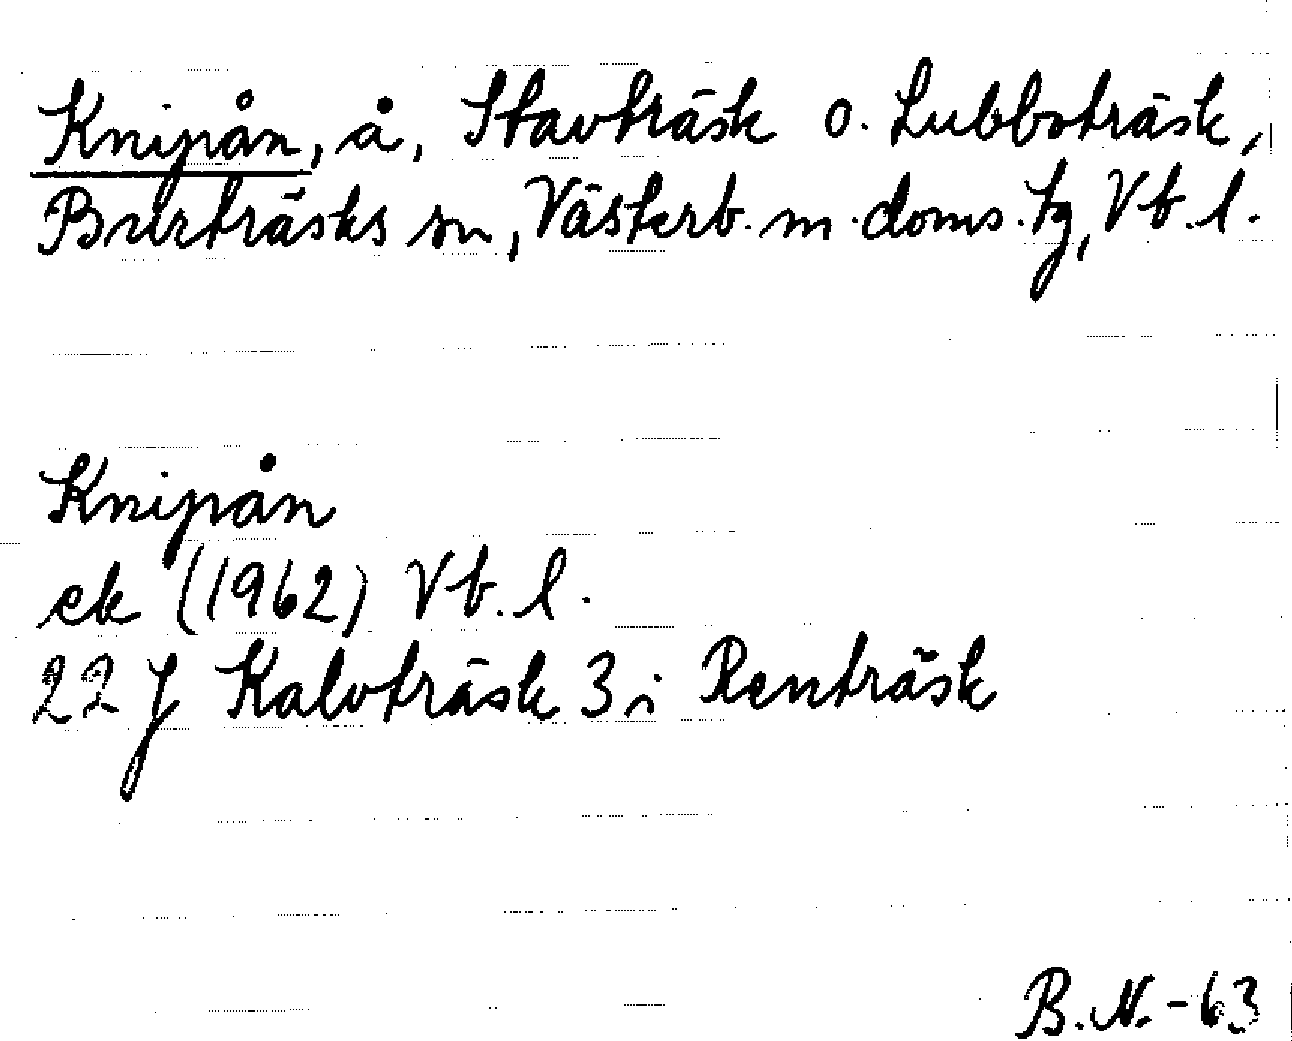 Knipån, å, Stavträsk o. Lubboträsk,
Burträsks sn, Västerb. m. doms. tg, Vb. l.
Knipån
ek (1962) Vb. l.
22 J Kalvträsk 3 i Renträsk
B.N. - 63